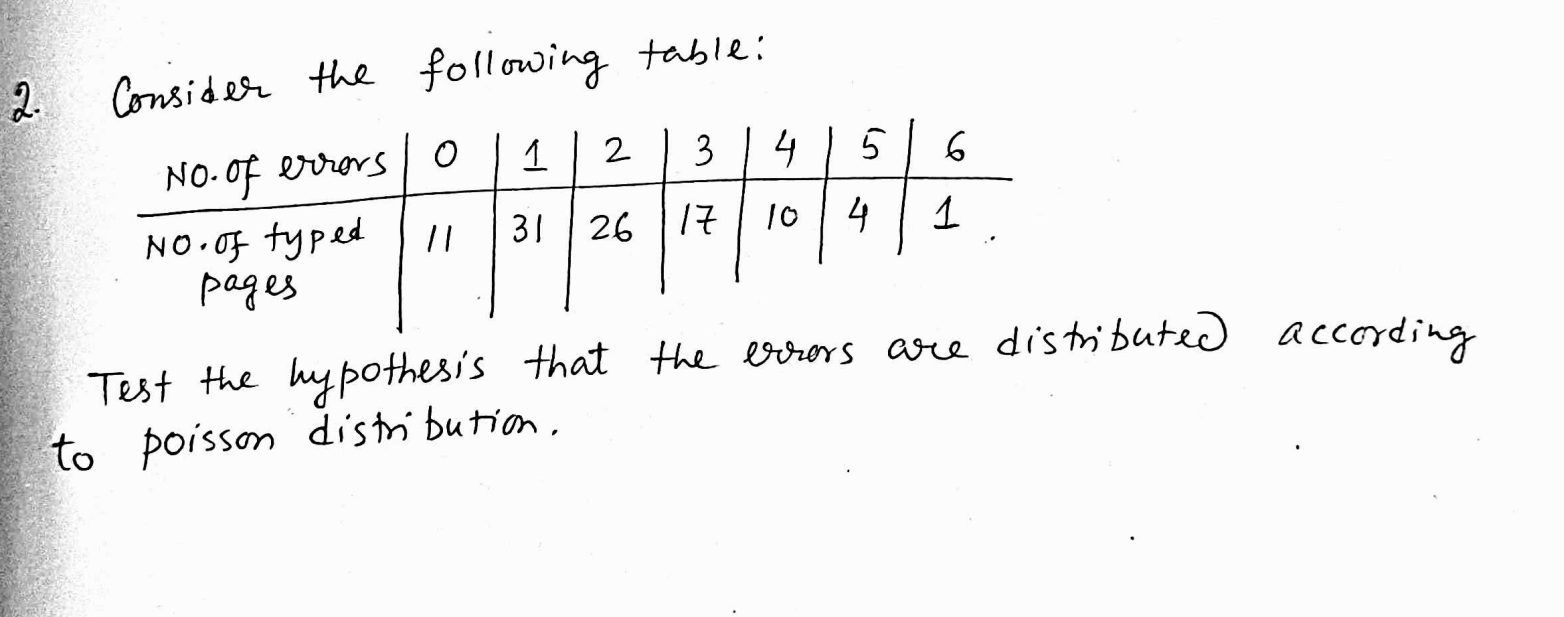 2. Consider the following table:
NO. of errors | 0 | 1 | 2 | 3 | 4 | 5 | 6
NO. of typed | 11 | 31 | 26 | 17 | 10 | 4 | 1
pages
Test the hypothesis that the errors are distributed according
to poisson distribution.